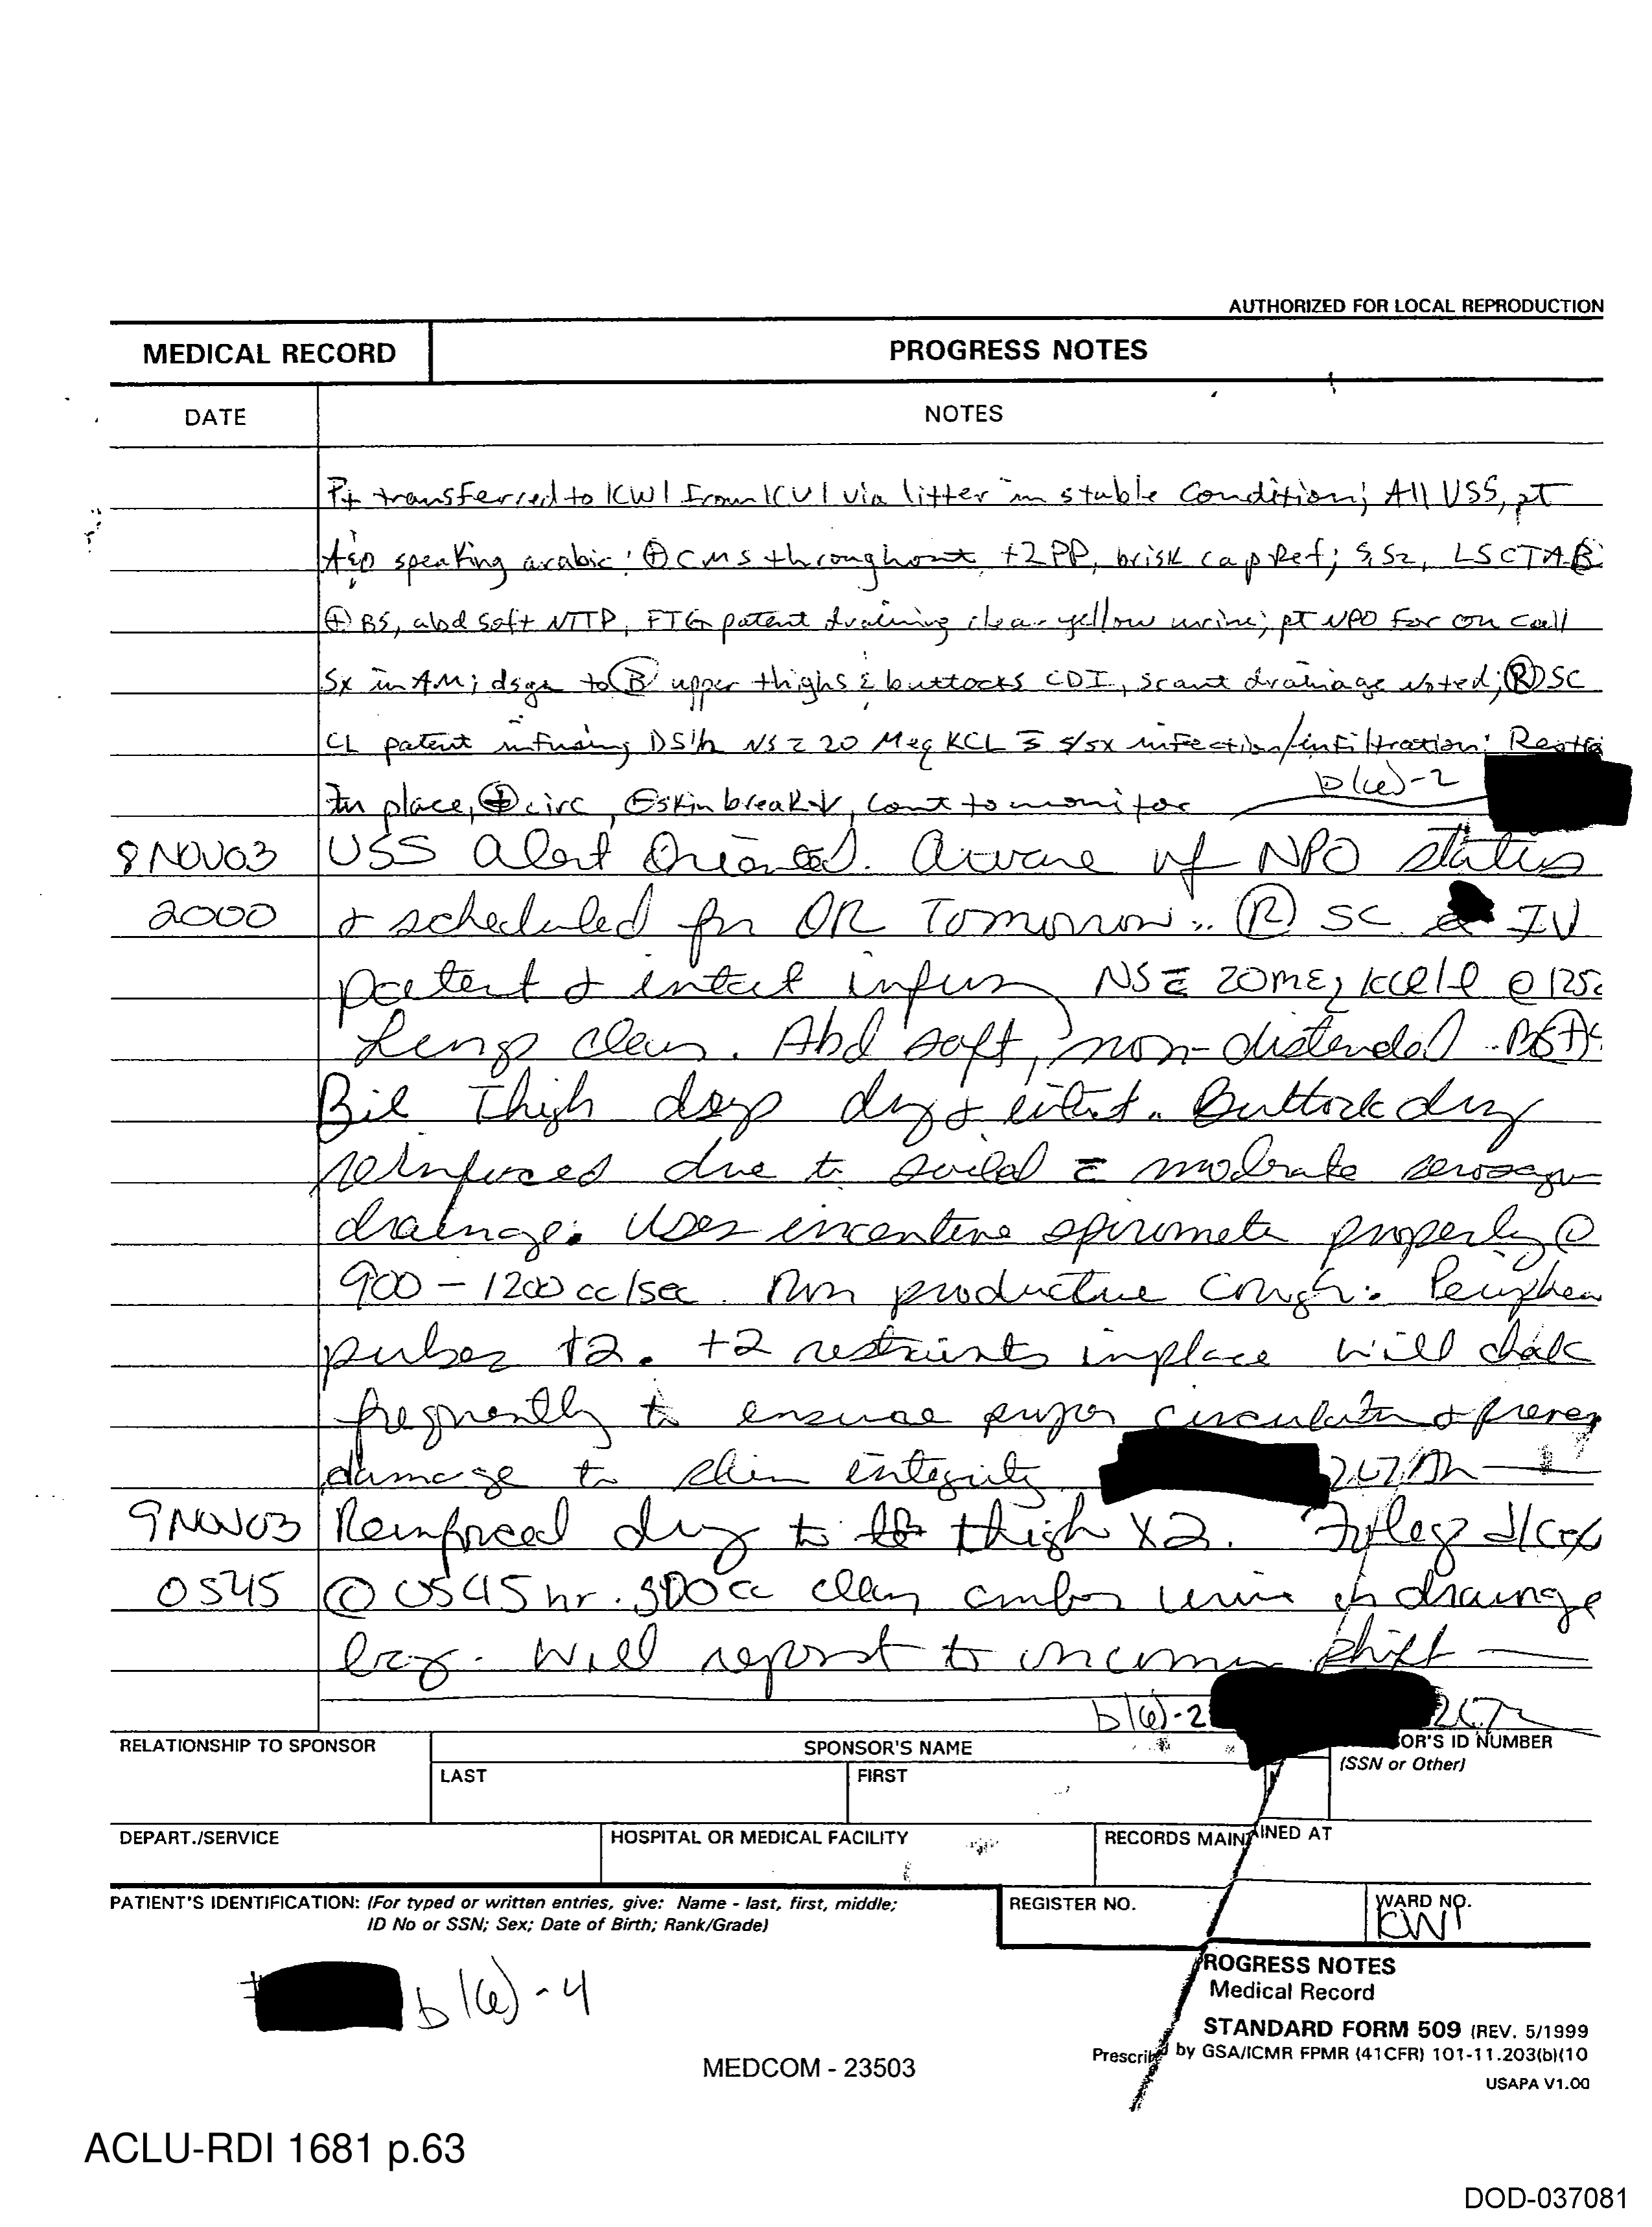 AUTHORIZED FOR LOCAL REPRODUCTION
MEDICAL RECORD
PROGRESS NOTES
DATE
NOTES
Pt transferred to ICW1 from ICU1 via litter in stable condition; All VSS, pt
A&O speaking arabic; ⊕ CMS throughout +2 PP, brisk cap Ref; S,S2, LSCTA Ⓑ
⊕ BS, abd soft NTTP, FTG patent draining clear yellow urine; pt NPO for on call
Sx in AM; dsgs to Ⓑ upper thighs & buttocks CDI, scant drainage noted; Ⓡ SC
CL patent infusing D5½ NS c̄ 20 Meq KCL s̄ s/sx infection/infiltration;
In place, ⊕ circ, ⊖ skin break↓, cont to monitor b(6)-2
8NOV03 VSS Alert Oriented. Aware of NPO status
2000 & scheduled for OR Tomorrow. Ⓡ SC IV
patent & intact infusing NS c̄ 20mEq kcl/l @ 125c
Lungs clear. Abd soft, non-distended. BS⊕
Bil Thigh dsgs dry & intact. Buttock dsg
reinforced due to soiled c̄ moderate serosang
drainage. Uses incentive spirometer properly @
900 - 1200 cc/sec. Non productive cough. Peripheral
pulses +2. +2 restraints inplace will check
frequently to ensure proper circulation & preven
damage to skin integrity
9NOV03 Reinforced dsg to thigh x2. Foley d/c
0545 @ 0545 hr. 300cc clear amber urine in drainage
bag. Will report to incoming shift
b(6)-2
RELATIONSHIP TO SPONSOR
SPONSOR'S NAME
OR'S ID NUMBER
(SSN or Other)
LAST
FIRST
DEPART./SERVICE
HOSPITAL OR MEDICAL FACILITY
RECORDS MAINTAINED AT
PATIENT'S IDENTIFICATION: (For typed or written entries, give: Name - last, first, middle;
ID No or SSN; Sex; Date of Birth; Rank/Grade)
REGISTER NO.
WARD NO.
ICW1
# b(6)-4
PROGRESS NOTES
Medical Record
STANDARD FORM 509 (REV. 5/1999
Prescribed by GSA/ICMR FPMR (41CFR) 101-11.203(b)(10
USAPA V1.00
MEDCOM - 23503
ACLU-RDI 1681 p.63
DOD-037081